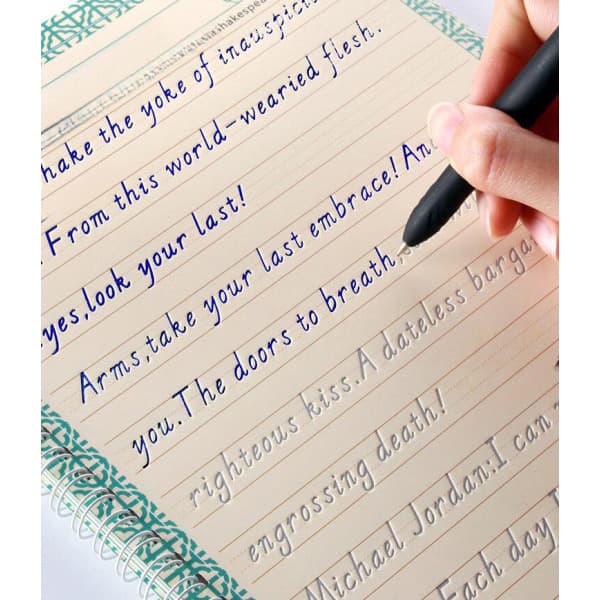 hakespea
hake the yoke of inauspici
From this world-wearied flesh.
yes,look your last!
Arms,take your last embrace! An
you.The doors to breath,
righteous kiss.A dateless barga
engrossing death!
Michael Jordan:I can
Each day